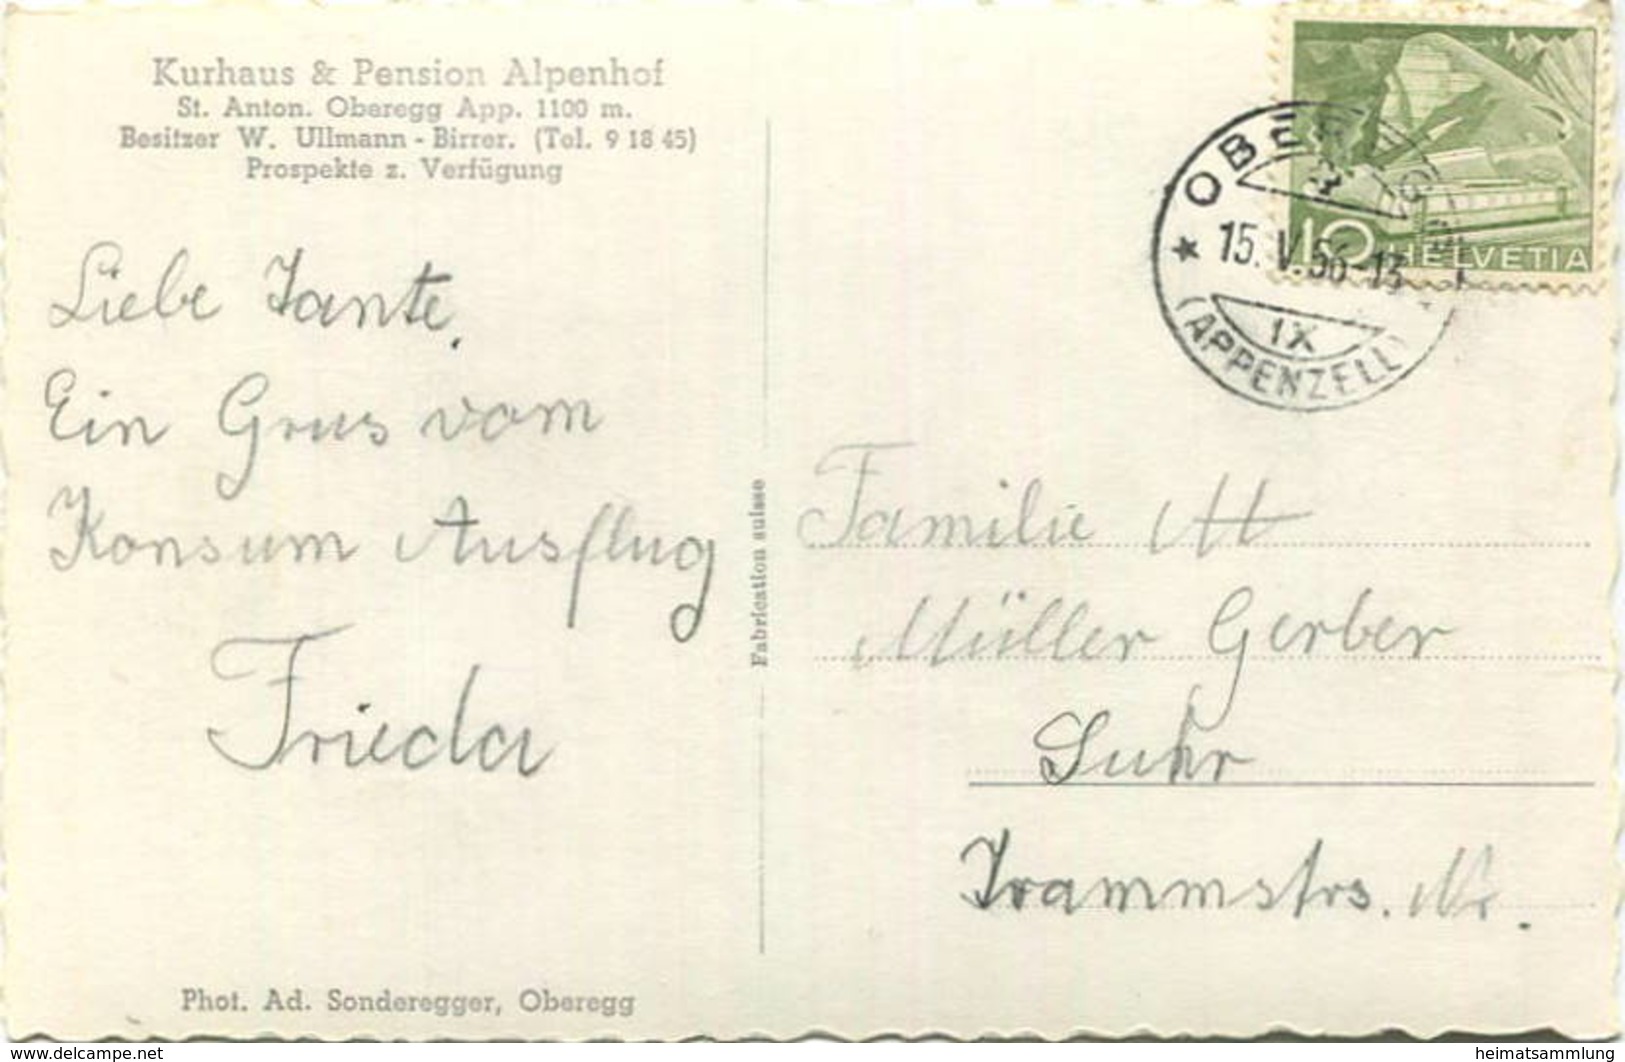 Kurhaus & Pension Alpenhof
St. Anton. Oberegg App. 1100 m.
Besitzer W. Ullmann - Birrer. (Tel. 9 18 45)
Prospekte z. Verfügung
Liebe Tante,
Ein Grus vom
Konsum Ausflug
Frieda
Phot. Ad. Sonderegger, Oberegg
Fabrication suisse
10 HELVETIA
OBEREGG
15. V. 56-13
IX
(APPENZELL)
Familie
Müller Gerber
Suhr
Trammstrs. Nr.
www.delcampe.net
heimatsammlung